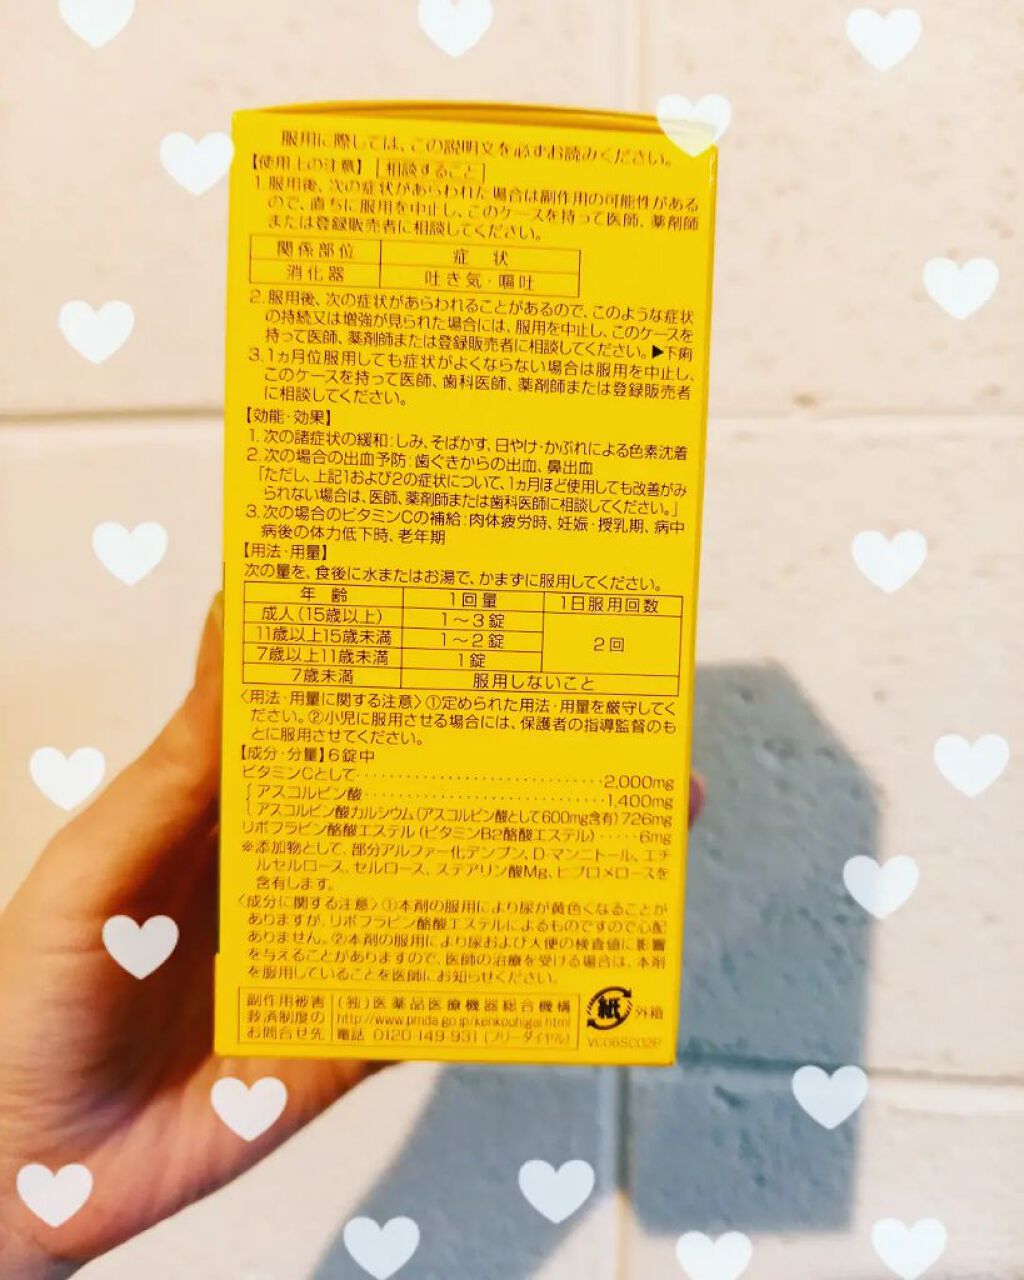 服用に際しては、この説明文を必ずお読みください。
【使用上の注意】 相談すること
1.服用後、次の症状があらわれた場合は副作用の可能性がある
ので、直ちに服用を中止し、このケースを持って医師、薬剤師
または登録販売者に相談してください。
関係部位 症状
消化器 吐き気・嘔吐
2.服用後、次の症状があらわれることがあるので、このような症状
の持続又は増強が見られた場合には、服用を中止し、このケースを
持って医師、薬剤師または登録販売者に相談してください。▶下痢
3.1ヵ月位服用しても症状がよくならない場合は服用を中止し、
このケースを持って医師、歯科医師、薬剤師または登録販売者
に相談してください。
【効能・効果】
1.次の諸症状の緩和:しみ、そばかす、日やけ・かぶれによる色素沈着
2.次の場合の出血予防:歯ぐきからの出血、鼻出血
「ただし、上記1および2の症状について、1ヵ月ほど使用しても改善がみ
られない場合は、医師、薬剤師または歯科医師に相談してください。」
3.次の場合のビタミンCの補給:肉体疲労時、妊娠・授乳期、病中
病後の体力低下時、老年期
【用法・用量】
次の量を、食後に水またはお湯で、かまずに服用してください。
年齢 1回量 1日服用回数
成人(15歳以上) 1~3錠
11歳以上15歳未満 1~2錠 2回
7歳以上11歳未満 1錠
7歳未満 服用しないこと
〈用法・用量に関する注意〉①定められた用法・用量を厳守してく
ださい。②小児に服用させる場合には、保護者の指導監督のも
とに服用させてください。
【成分・分量】6錠中
ビタミンCとして・・・・・・・・・・・・・・・・・・・・・・・・・・・・2,000mg
アスコルビン酸・・・・・・・・・・・・・・・・・・・・・・・・・・・1,400mg
アスコルビン酸カルシウム(アスコルビン酸として600mg含有)726mg
リボフラビン酪酸エステル(ビタミンB2酪酸エステル)・・・・・6mg
※添加物として、部分アルファー化デンプン、D-マンニトール、エチ
ルセルロース、セルロース、ステアリン酸Mg、ヒプロメロースを
含有します。
〈成分に関する注意〉①本剤の服用により尿が黄色くなることが
ありますが、リボフラビン酪酸エステルによるものですので心配
ありません。②本剤の服用により尿および大便の検査値に影響
を与えることがありますので、医師の治療を受ける場合は、本剤
を服用していることを医師にお知らせください。
副作用被害 (独)医薬品医療機器総合機構
救済制度の http://www.pmda.go.jp/kenkouhigai.html
お問合せ先 電話 0120-149-931(フリーダイヤル)
紙 外箱
VC06SC02P